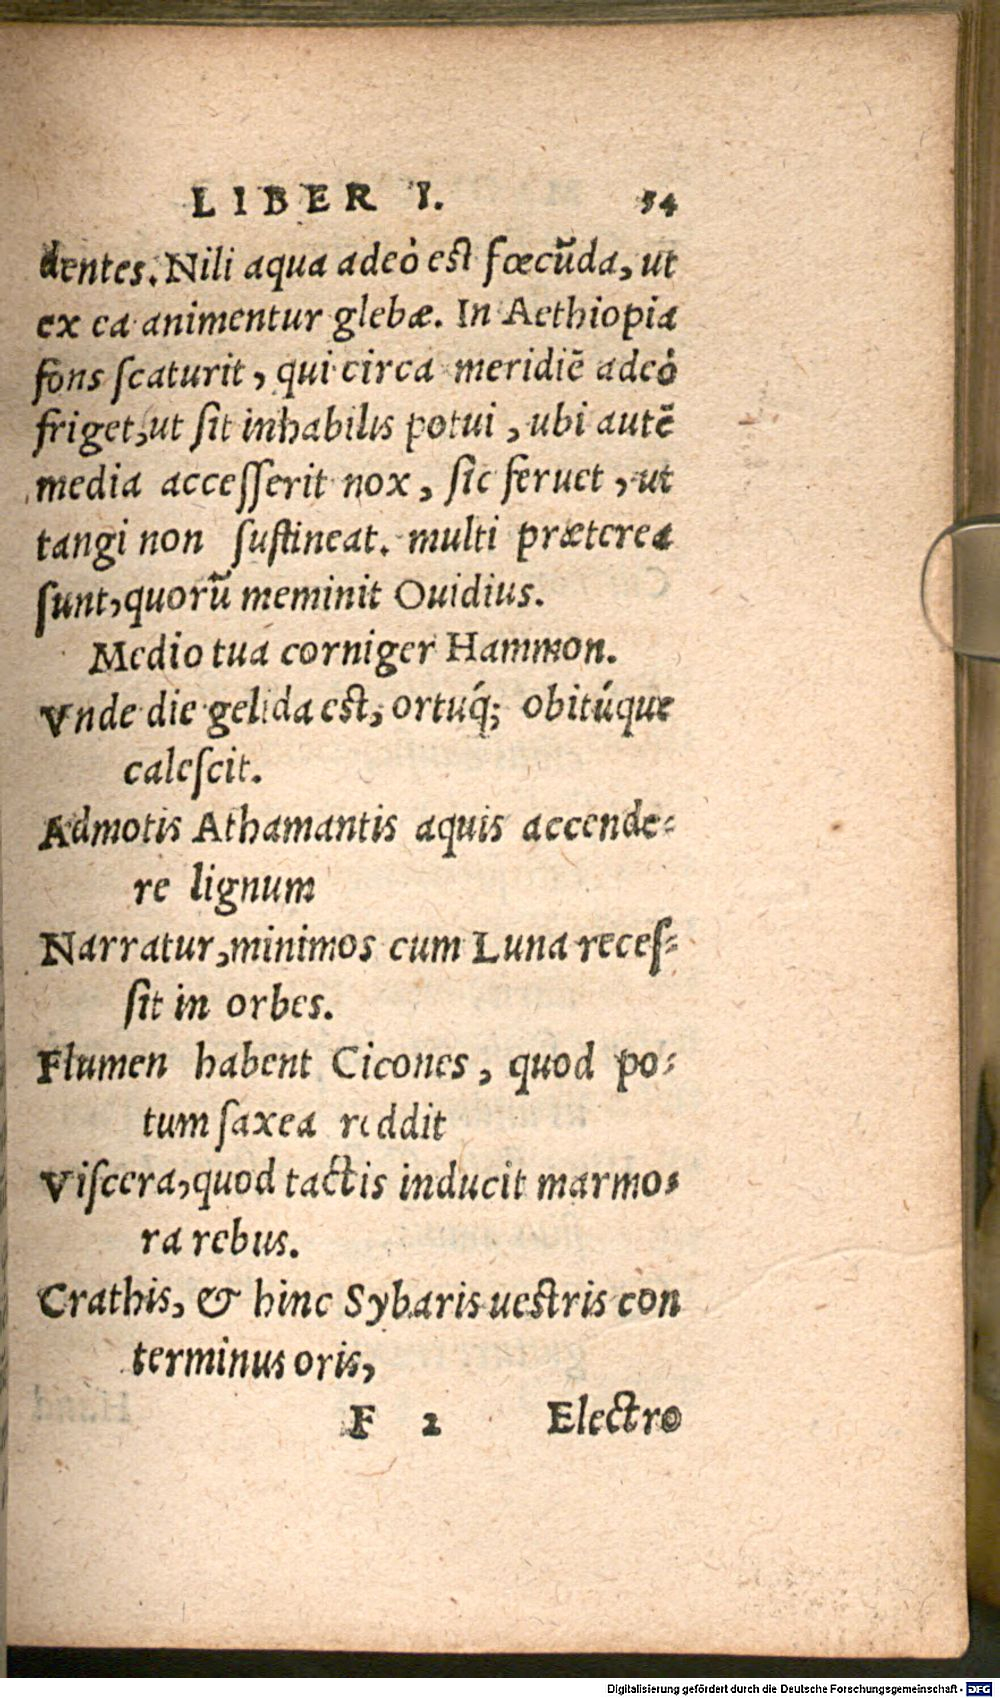 LIBER I. 54
dentes. Nili aqua adeò est fœcũda, ut
ex ea animentur glebæ. In Aethiopia
fons ſcaturit, qui circa meridiẽ adeò
friget, ut ſit inhabilis potui, ubi autẽ
media acceſſerit nox, ſic feruet, ut
tangi non ſuſtineat. multi præterea
ſunt, quorũ meminit Ouidius.
Medio tua corniger Hammon.
Vnde die gelida est, ortuq́; obitúque
caleſcit.
Admotis Athamantis aquis accende-
re lignum
Narratur, minimos cum Luna receſ-
ſit in orbes.
Flumen habent Cicones, quod po-
tum ſaxea reddit
Viſcera, quod tactis inducit marmo-
ra rebus.
Crathis, & hinc Sybaris uestris con
terminus oris,
F 2 Electro
Digitalisierung gefördert durch die Deutsche Forschungsgemeinschaft - DFG